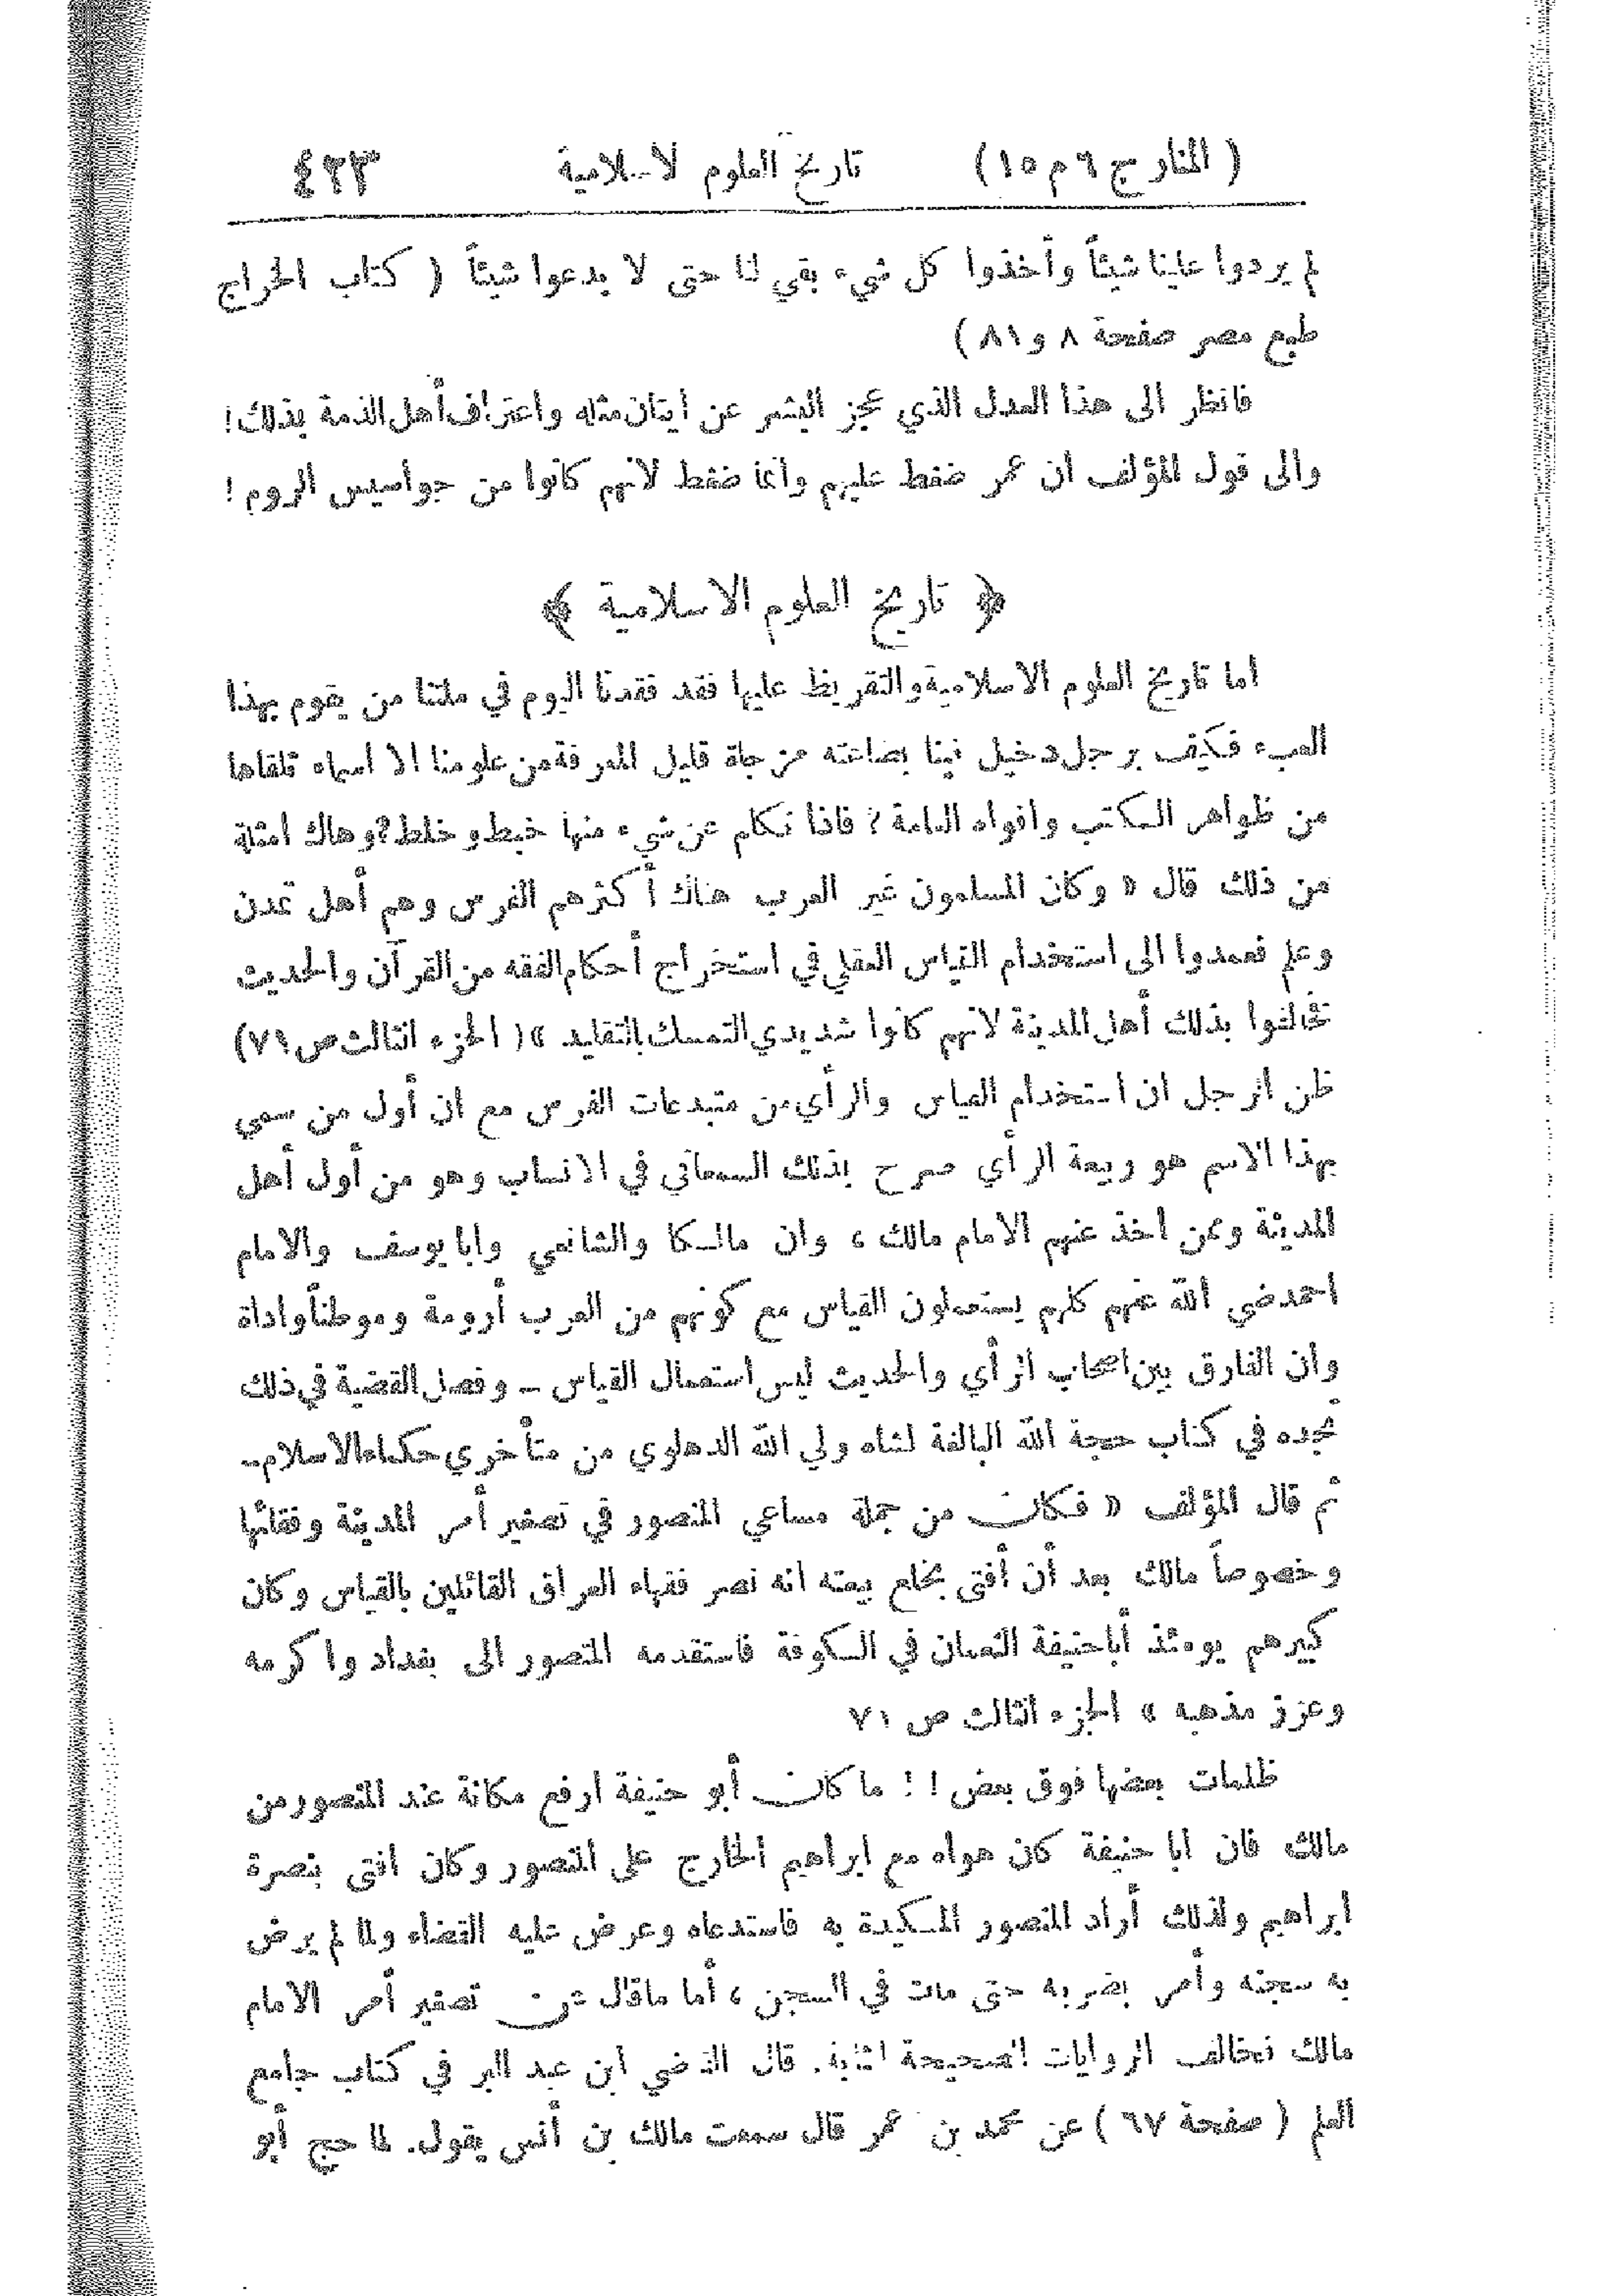 ( المنار ج ٦ م ١٥ ) تاريخ العلوم الاسلامية ٤٣٣
لم يردوا علينا شيئاً وأخذوا كل شيء بقي لنا حتى لا يدعوا شيئاً ( كتاب الخراج
طبع مصر صفحة ٨ و ٨١ )
فانظر الى هذا العدل الذي عجز البشر عن ايتان مثله واعتراف أهل الذمة بذلك !
والى قول المؤلف ان عمر ضغط عليهم وانما ضغط لأنهم كانوا من جواسيس الروم !
﴿ تاريخ العلوم الاسلامية ﴾
اما تاريخ العلوم الاسلامية والتقريظ عليها فقد فقدنا اليوم في ملتنا من يقوم بهذا
العبء فكيف برجل دخيل فينا بضاعته مزجاة قليل المعرفة من علومنا الا اسماء تلقاها
من ظواهر الكتب وافواه العامة ؟ فاذا تكلم عن شيء منها خبط وخلط ؟ وهاك امثلة
من ذلك قال « وكان المسلمون غير العرب هناك أكثرهم الفرس وهم أهل تمدن
وعلم فعمدوا الى استخدام القياس العقلي في استخراج أحكام الفقه من القرآن والحديث
نخالفوا بذلك أهل المدينة لانهم كانوا شديدي التمسك بالتقليد » ( الجزء الثالث ص ٧١)
ظن الرجل ان استخدام القياس والرأي من مبتدعات الفرس مع ان أول من سمي
بهذا الاسم هو ربيعة الرأي صرح بذلك السمعاني في الانساب وهو من أول أهل
المدينة وممن اخذ عنهم الامام مالك ، وان مالكا والشافعي وابا يوسف والامام
احمد ضي الله عنهم كلهم يستعملون القياس مع كونهم من العرب أرومة وموطناً واداة
وان الفارق بين اصحاب الرأي والحديث ليس استعمال القياس ــ وفصل القضية في ذلك
تجده في كتاب حجة الله البالغة لشاه ولي الله الدهلوي من متأخري حكماء الاسلام ــ
ثم قال المؤلف « فكان من جملة مساعي المنصور في تصغير أمر المدينة وفقائها
وخصوصاً مالك بعد أن أفتى بخلع بيعته انه نصر فقهاء العراق القائلين بالقياس وكان
كبيرهم يومئذ أبا حنيفة النعمان في الكوفة فاستقدمه المنصور الى بغداد واكرمه
وعزز مذهبه » الجزء الثالث ص ٧١
ظلمات بعضها فوق بعض ! ! ما كان أبو حنيفة ارفع مكانة عند المنصور من
مالك فان ابا حنيفة كان هواه مع ابراهيم الخارج على المنصور وكان افتى بنصرة
ابراهيم ولذلك أراد المنصور المكيدة به فاستدعاه وعرض عليه القضاء ولما لم يرض
به سجنه وأمر بضربه حتى مات في السجن ، أما ما قال من تصغير أمر الامام
مالك فخالف الروايات الصحيحة الثابتة. قال القاضي ابن عبد البر في كتاب جامع
العلم ( صفحة ٦٧ ) عن محمد بن عمر قال سمعت مالك بن أنس يقول. لما حج أبو